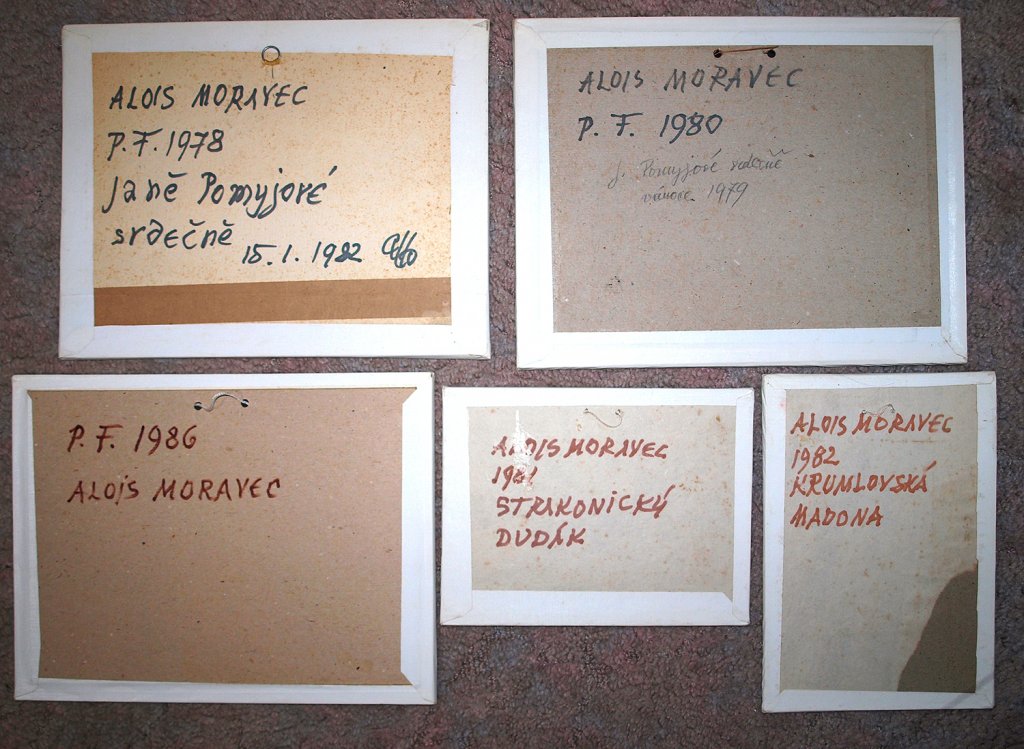 ALOIS MORAVEC
P.F. 1978
Janě Pomyjové
srdečně
15.1.1982
ALOIS MORAVEC
P. F. 1980
J. Pomyjové srdečně
vánoce 1979
P. F. 1986
ALOIS MORAVEC
ALOIS MORAVEC
STRAKONICKÝ
DUDÁK
ALOIS MORAVEC
1982
KRUMLOVSKÁ
MADONA